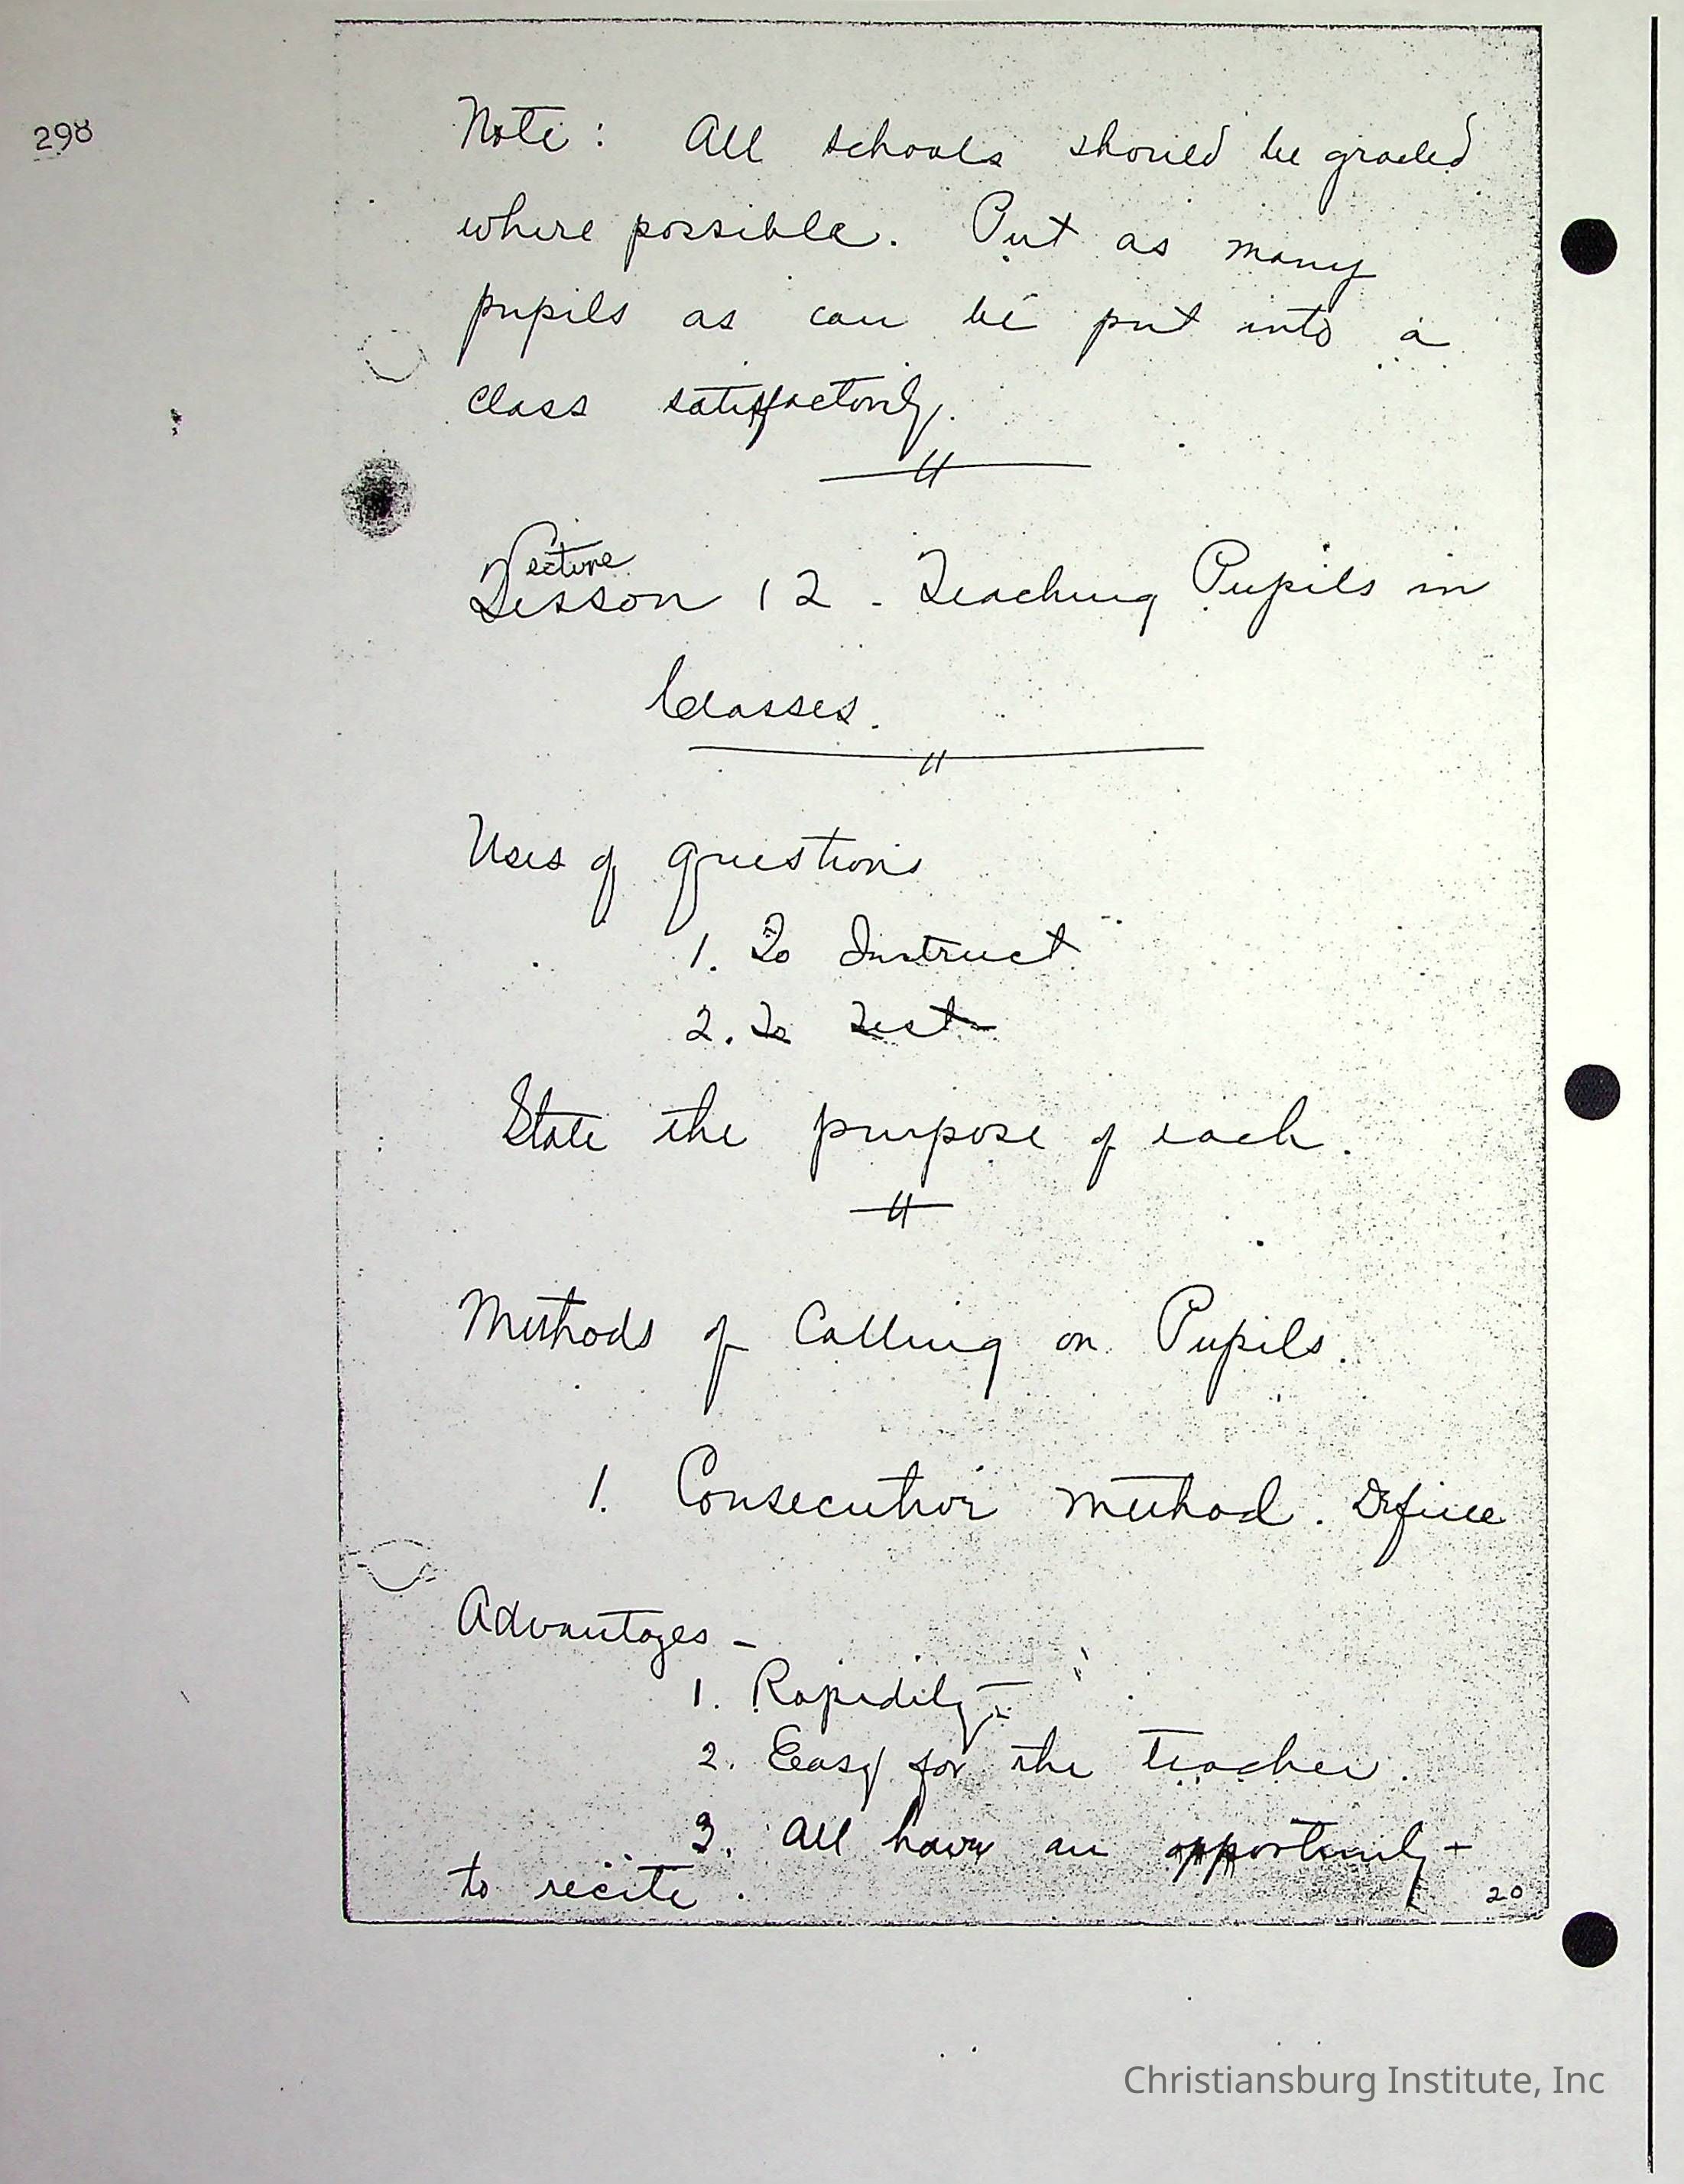 298
Note: All schools should be graded
where possible. Put as many
pupils as can be put into a
class satisfactorily.
Lecture
Lesson 12 - Teaching Pupils in
Classes.
Uses of questions
1. To Instruct
2. To Test
State the purpose of each.
Methods of Calling on Pupils.
1. Consecutive method. Define
Advantages -
1. Rapidity -
2. Easy for the teacher.
3. All have an opportunity
to recite.
20
Christiansburg Institute, Inc